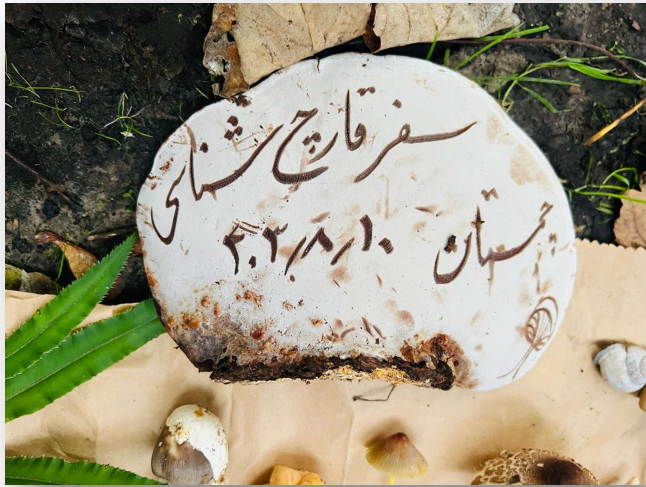 سفر قارچ شناسی
چمستان
۴۰۳/۸/۱۰